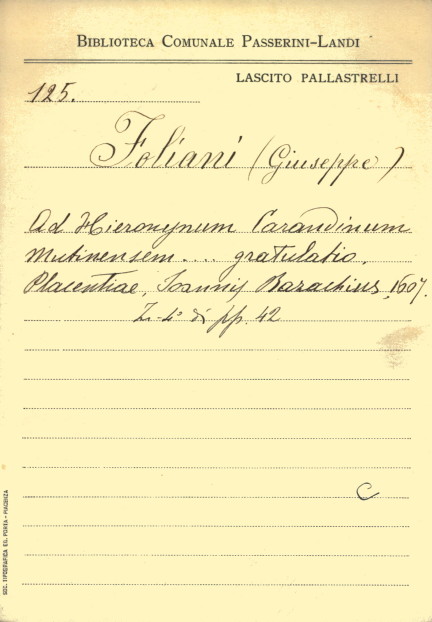 BIBLIOTECA COMUNALE PASSERINI-LANDI
LASCITO PALLASTRELLI
125.
Foliani (Giuseppe)
Ad Hieronynum Carandinum
Mutinensem .... gratulatio.
Placentiae, Ioannis Barachius, 1607.
4º di pp. 42
C
SOC. TIPOGRAFICA ED. PORTA - PIACENZA